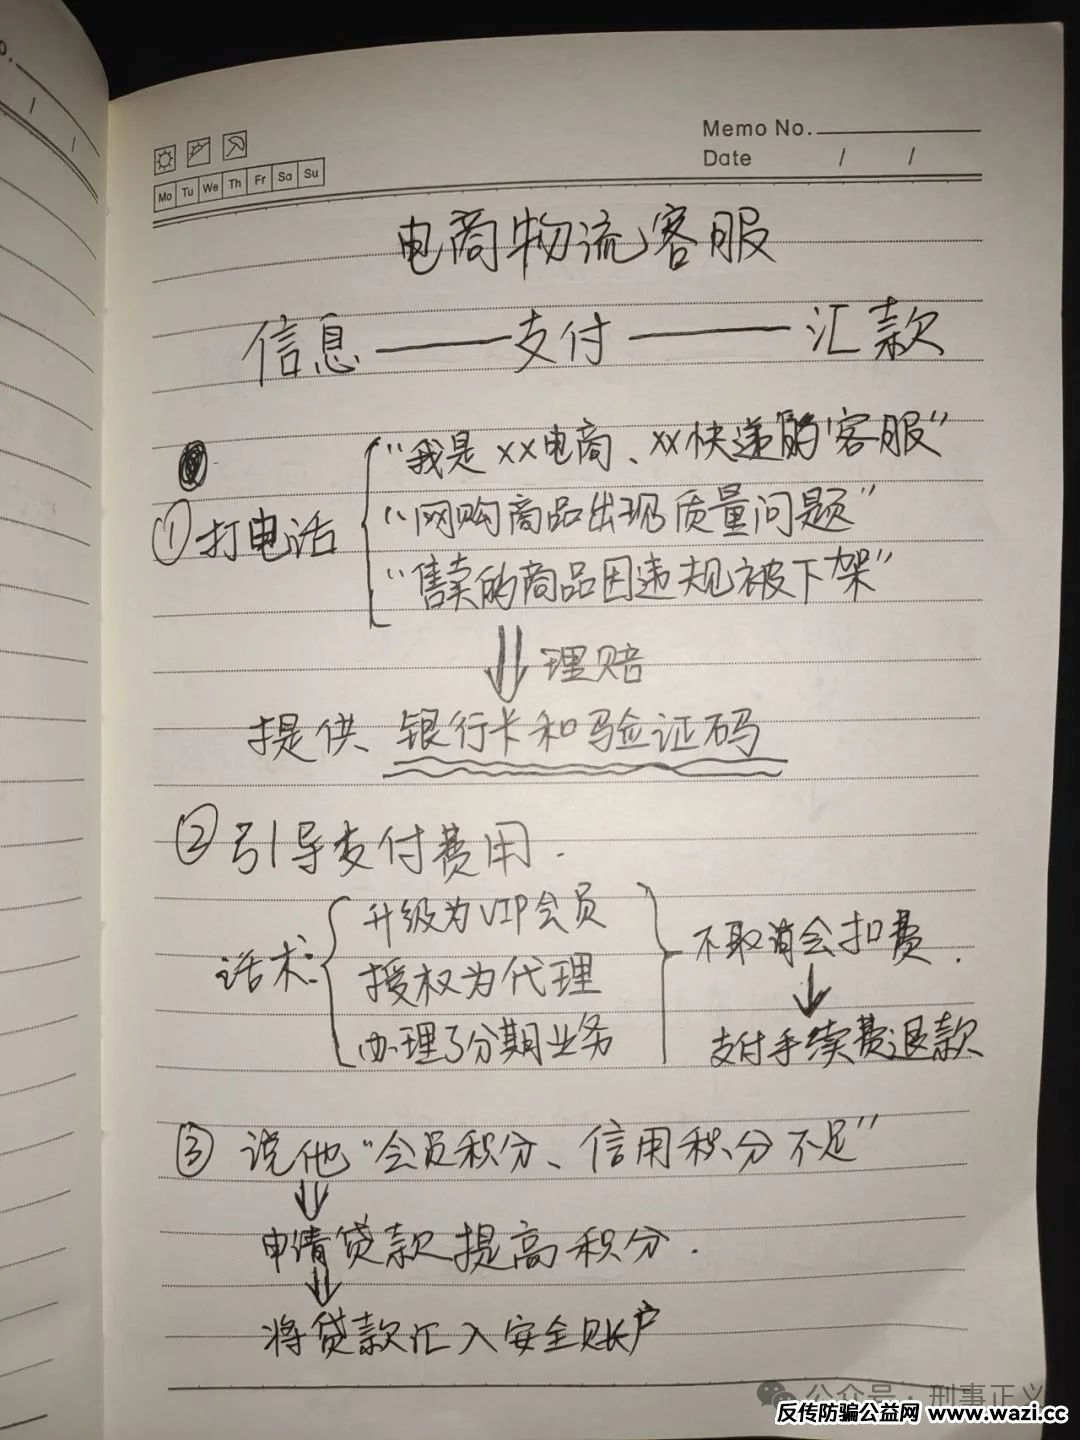 Memo No.
Date / /
Mo Tu We Th Fr Sa Su
电商物流客服
信息——支付——汇款
“我是xx电商、xx快递的客服”
①打电话
“网购商品出现质量问题”
“售卖的商品因违规被下架”
理赔
提供、银行卡和验证码
②引导支付费用.
话术:
升级为VIP会员
授权为代理
办理了分期业务
不取消会扣费.
支付手续费退款
③说他“会员积分、信用积分不足”
申请贷款提高积分.
将贷款汇入安全账户
公众号·刑事正义
反传防骗公益网 www.wazi.cc